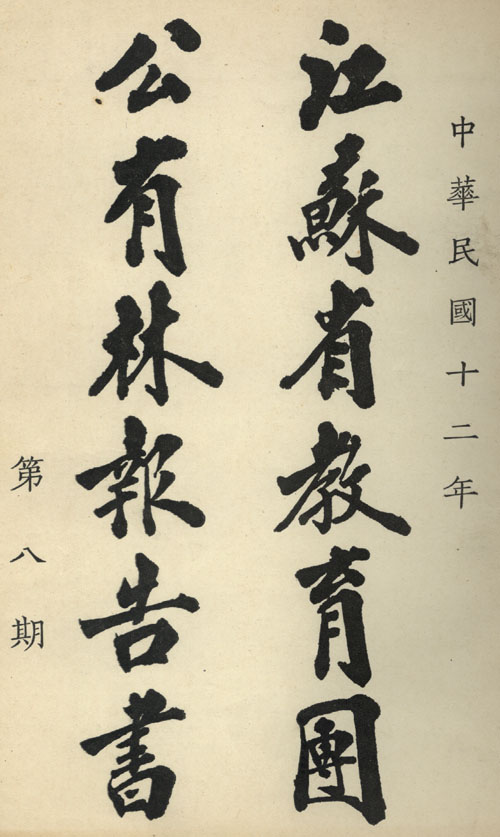 中華民國十二年
江蘇省教育團
公有林報告書
第八期